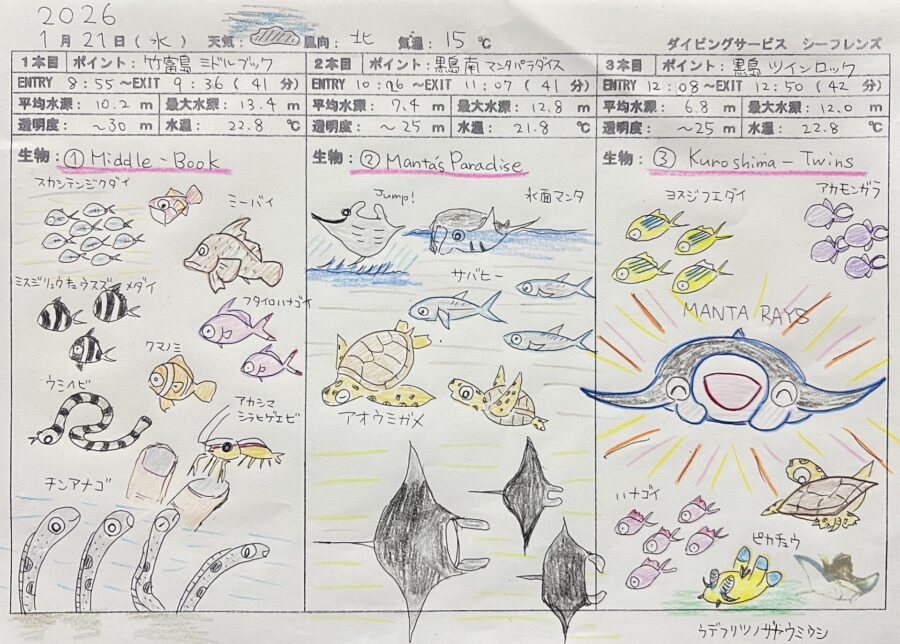 2026
1月21日(水) 天気: 風向: 北 気温: 15℃
ダイビングサービス シーフレンズ
1本目 ポイント: 竹富島 ミドルブック
ENTRY 8:55~EXIT 9:36(41分)
平均水深: 10.2 m 最大水深: 13.4 m
透明度: ~30 m 水温: 22.8 ℃
生物: ① Middle-Book
スカシテンジクダイ
ミーバイ
ミスジリュウキュウスズメダイ
フタイロハナゴイ
クマノミ
ウミヘビ
アカシマ
シラヒゲエビ
チンアナゴ
2本目 ポイント: 黒島南マンタパラダイス
ENTRY 10:26~EXIT 11:07(41分)
平均水深: 7.4 m 最大水深: 12.8 m
透明度: ~25 m 水温: 21.8 ℃
生物: ② Manta's Paradise
Jump!
水面マンタ
サバヒー
アオウミガメ
3本目 ポイント: 黒島 ツインロック
ENTRY 12:08~EXIT 12:50(42分)
平均水深: 6.8 m 最大水深: 12.0 m
透明度: ~25 m 水温: 22.8 ℃
生物: ③ Kuroshima-Twins
ヨスジフエダイ
アカモンガラ
MANTA RAYS
ハナゴイ
ピカチュウ
ウデフリツノザヤウミウシ